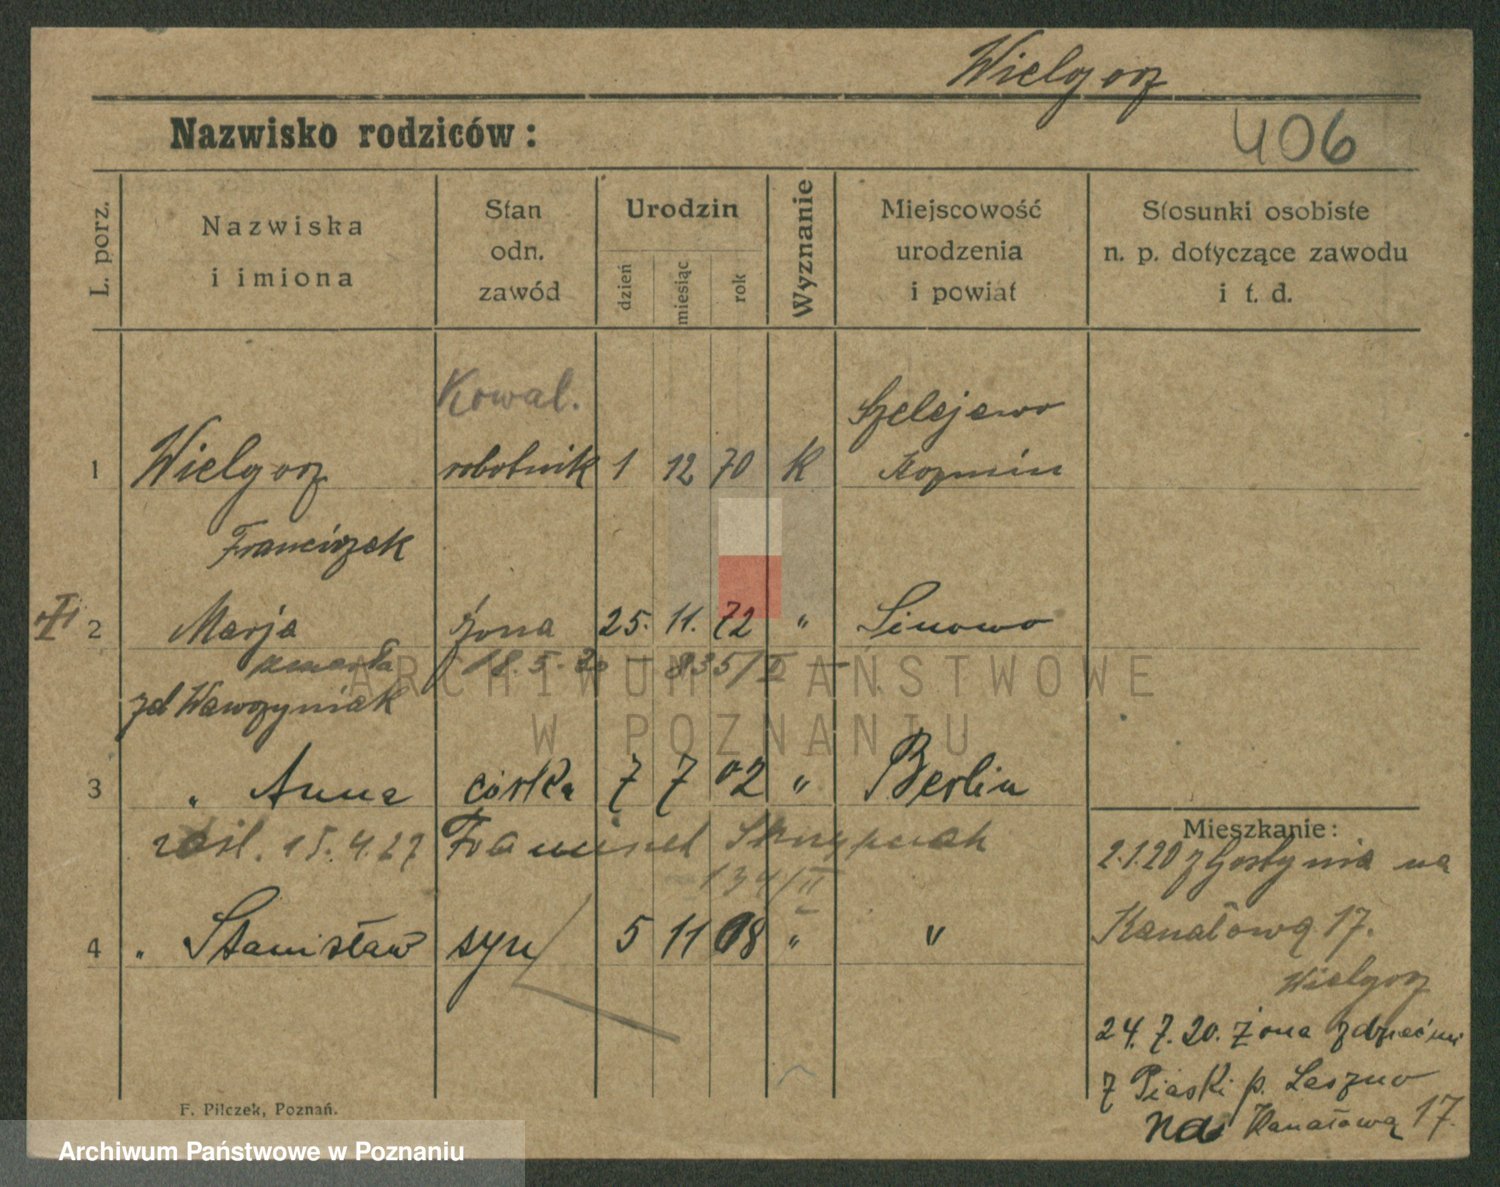 Wielgorz
Nazwisko rodziców:
406
L. porz.
Nazwiska
i imiona
Stan
odn.
zawód
Urodzin
dzień
miesiąc
rok
Wyznanie
Miejscowość
urodzenia
i powiat
Stosunki osobiste
n. p. dotyczące zawodu
i t. d.
Kowal.
Szelejewo
1 Wielgorz robotnik 1 12 70 K Kozmin
Franciszek
2 Marja żona 25. 11. 72 " Linowo
zmarła 18. 5. 30 - 835/II -
zd Wawrzyniak
3 " Anna córka 7 7 02 " Berlin
15.4.27 Franciszek Skrzypczak
134/II
4 " Stanisław syn 5 11 08 " "
Mieszkanie:
2.1.20 z Gostynia na
Kanałową 17.
Wielgorz
24. 7. 20. Żona z dziećmi
z Piaski p. Leszno
na Kanałową 17.
F. Pilczek, Poznań.
ARCHIWUM PAŃSTWOWE
W POZNANIU
Archiwum Państwowe w Poznaniu